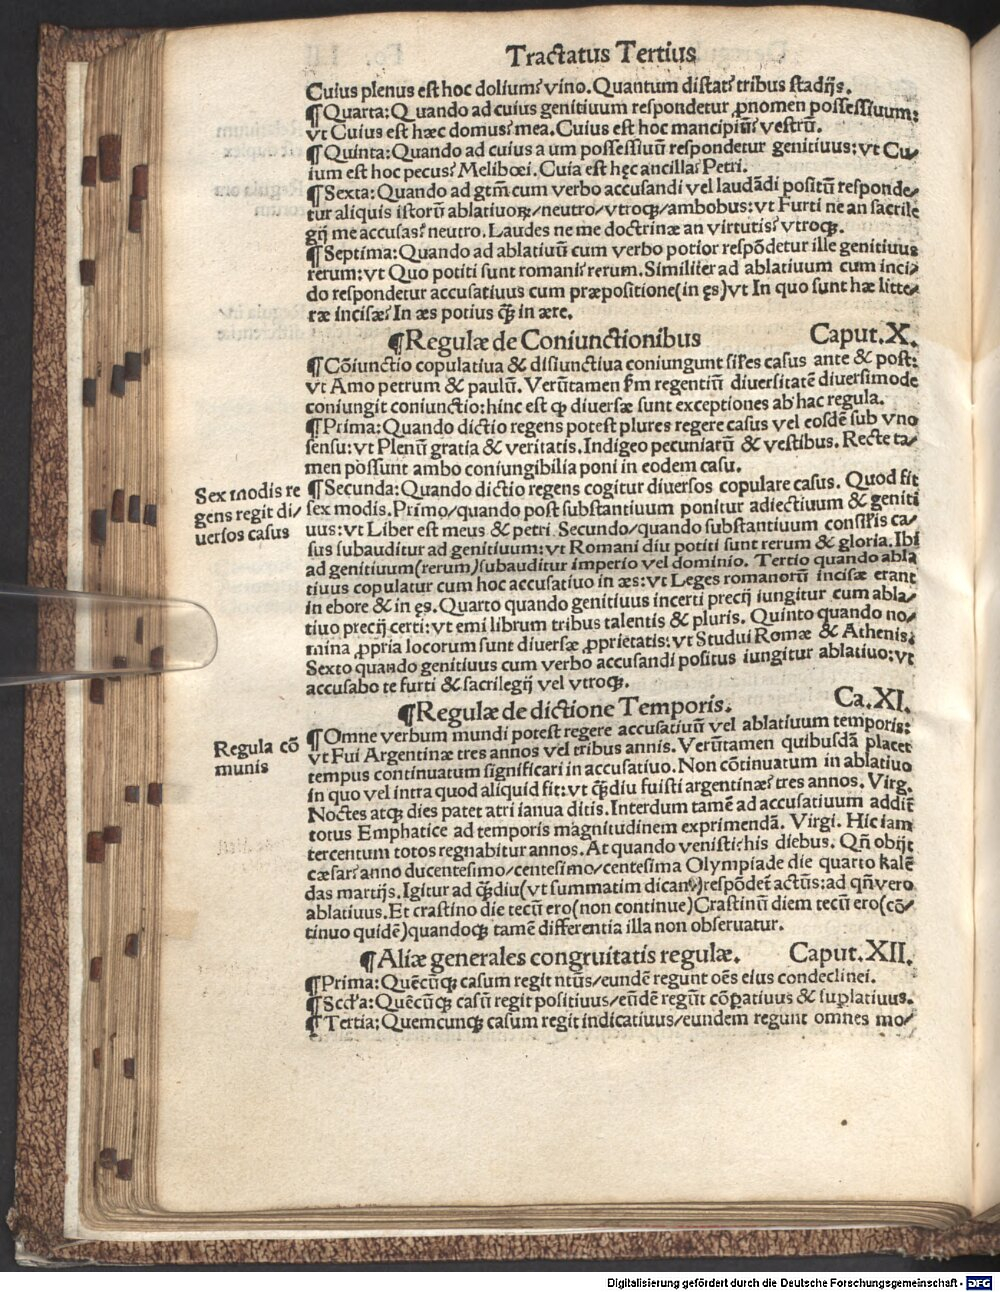 Tractatus Tertius
Cuius plenus est hoc dolium? vino. Quantum distat? tribus stadijs.
¶Quarta: Quando ad cuius genitiuum respondetur ꝓnomen possessiuum:
vt Cuius est hæc domus? mea. Cuius est hoc mancipiũ? vestrũ.
¶Quinta: Quando ad cuius a um possessiuũ respondetur genitiuus: vt Cu/
ium est hoc pecus? Melibœi. Cuia est hęc ancilla? Petri.
¶Sexta: Quando ad gtm̃ cum verbo accusandi vel laudãdi positũ responde/
tur aliquis istorũ ablatiuoꝝ/neutro/vtroqꝫ/ambobus: vt Furti ne an sacrile
gij me accusas? neutro. Laudes ne me doctrinæ an virtutis? vtroqꝫ.
¶Septima: Quando ad ablatiuũ cum verbo potior respõdetur ille genitiuus
rerum: vt Quo potiti sunt romani? rerum. Similiter ad ablatiuum cum inci/
do respondetur accusatiuus cum præpositione(in ęs)vt In quo sunt hæ litte/
ræ incisæ? In æs potius qꝫ̃ in ære.
¶Regulæ de Coniunctionibus Caput.X.
¶Cõiunctio copulatiua & disiunctiua coniungunt sil̃es casus ante & post:
vt Amo petrum & paulũ. Verũtamen s̃m regentiũ diuersitatẽ diuersimode
coniungit coniunctio: hinc est ꝙ diuersæ sunt exceptiones ab hac regula.
¶Prima: Quando dictio regens potest plures regere casus vel eosdẽ sub vno
sensu: vt Plenũ gratia & veritatis. Indigeo pecuniarũ & vestibus. Recte ta/
men possunt ambo coniungibilia poni in eodem casu.
Sex modis re
gens regit di/
uersos casus
¶Secunda: Quando dictio regens cogitur diuersos copulare casus. Quod fit
sex modis. Primo/quando post substantiuum ponitur adiectiuum & geniti
uus: vt Liber est meus & petri Secundo/quando substantiuum consil̃is ca/
sus subauditur ad genitiuum: vt Romani diu potiti sunt rerum & gloria. Ibi
ad genitiuum(rerum)subauditur imperio vel dominio. Tertio quando abla
tiuus copulatur cum hoc accusatiuo in æs: vt Leges romanorũ incisæ erant
in ebore & in ęs. Quarto quando genitiuus incerti precij iungitur cum abla/
tiuo precij certi: vt emi librum tribus talentis & pluris. Quinto quando no/
mina ꝓpria locorum sunt diuersæ ꝓprietatis: vt Studui Romæ & Athenis:
Sexto quando genitiuus cum verbo accusandi positus iungitur ablatiuo: vt
accusabo te furti & sacrilegij vel vtroqꝫ.
¶Regulæ de dictione Temporis. Ca.XI.
Regula cõ
munis
¶Omne verbum mundi potest regere accusatiuũ vel ablatiuum temporis:
vt Fui Argentinæ tres annos vel tribus annis. Verũtamen quibusdã placet
tempus continuatum significari in accusatiuo. Non cõtinuatum in ablatiuo
in quo vel intra quod aliquid fit: vt qꝫ̃diu fuisti argentinæ? tres annos. Virg.
Noctes atqꝫ dies patet atri ianua ditis. Interdum tamẽ ad accusatiuum addit̃
totus Emphatice ad temporis magnitudinem exprimendã. Virgi. Hic iam
tercentum totos regnabitur annos. At quando venisti? his diebus. Qñ obijt
cæsar? anno ducentesimo/centesimo/centesima Olympiade die quarto kalẽ
das martijs. Igitur ad qꝫ̃diu(vt summatim dicam)respõdet̃ actũs: ad qñ vero
ablatiuus. Et crastino die tecũ ero(non continue)Crastinũ diem tecũ ero(cõ/
tinuo quidẽ)quandoqꝫ tamẽ differentia illa non obseruatur.
¶Aliæ generales congruitatis regulæ. Caput.XII.
¶Prima: Quẽcũqꝫ casum regit ntũs/eundẽ regunt oẽs eius condeclinei.
¶Scd̃a: Quẽcũqꝫ casũ regit positiuus/eũdẽ regũt cõꝑatiuus & suplatiuus.
¶Tertia: Quemcunqꝫ casum regit indicatiuus/eundem regunt omnes mo/
Digitalisierung gefördert durch die Deutsche Forschungsgemeinschaft - DFG